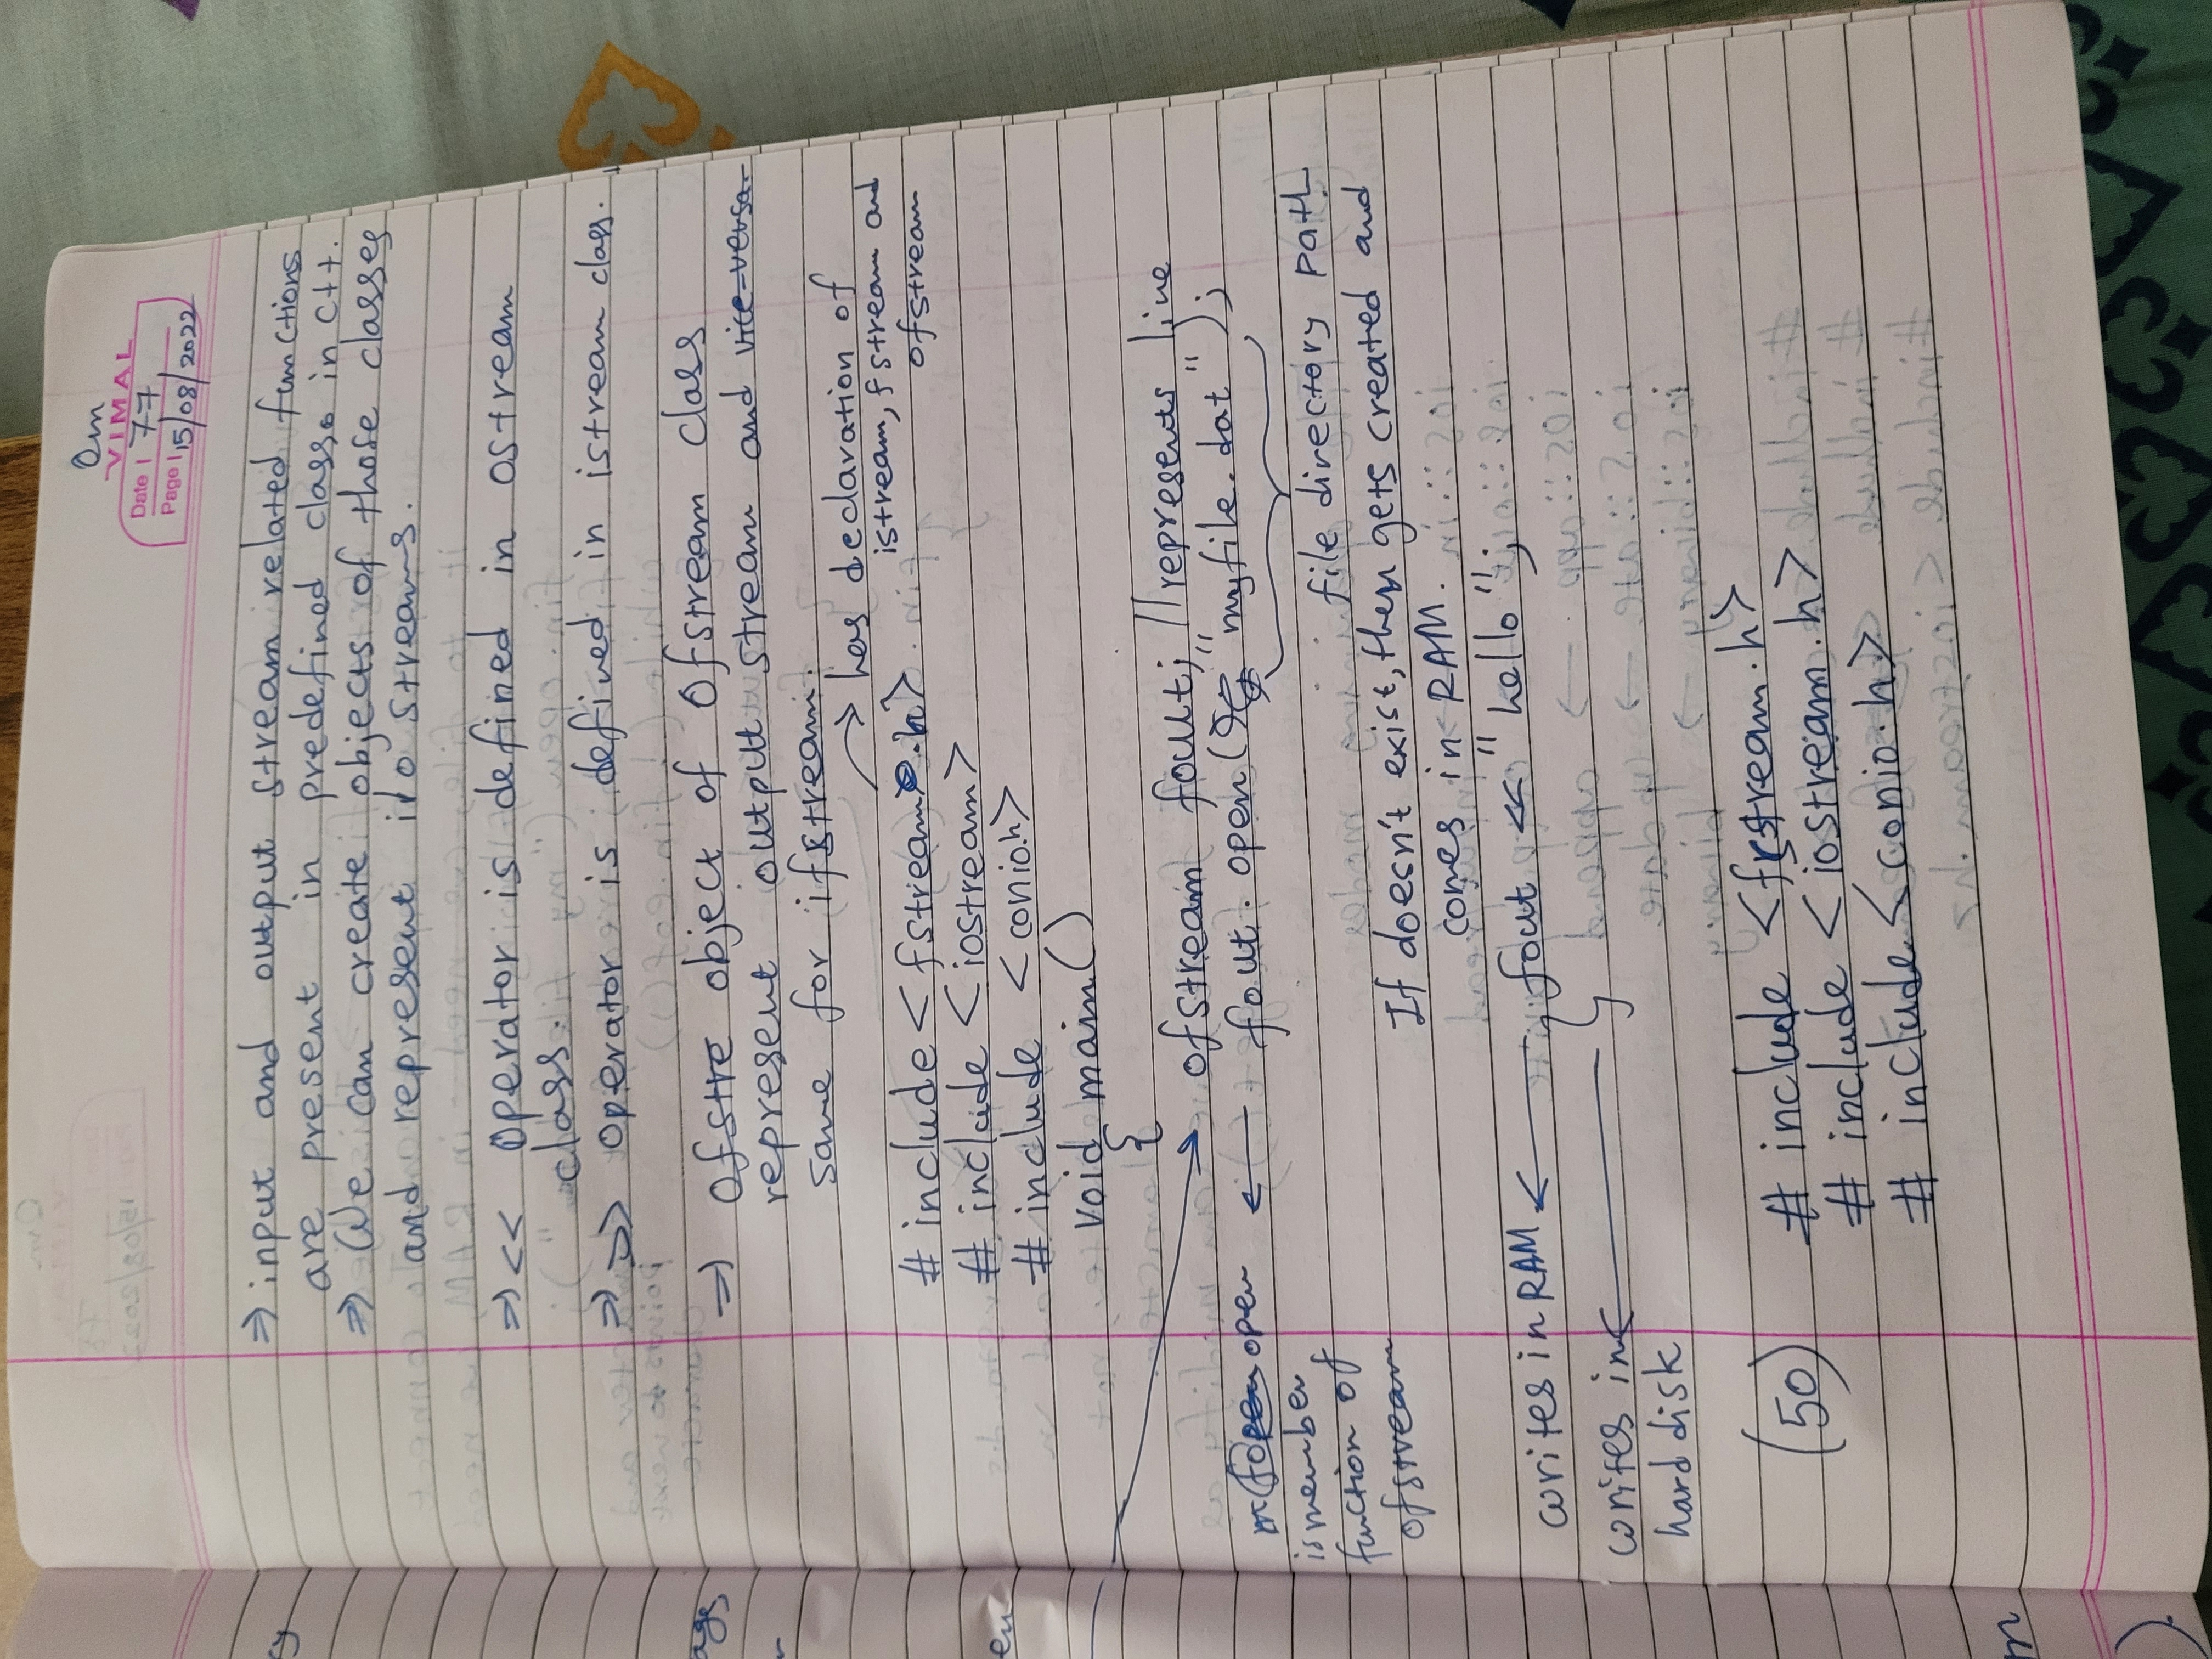 Om
VIMAL
Date | 77
Page | 15/08/2022
⇒ input and output stream related functions
are present in predefined class in C++.
⇒ We can create objects of those classes
and represent i/o streams.
⇒ << operator is defined in ostream
class.
⇒ >> operator is defined in istream class.
⇒ ofstre object of ofstream class
represent output stream and vice-versa.
same for ifstream.
→ has declaration of
istream, fstream and
ofstream
# include < fstream.h>
# include <iostream>
# include <conio.h>
void main()
{
ofstream fout; // represents line
fout. open( "myfile.dat" );
open
is member
function of
ofstream
file directory path
If doesn't exist, then gets created and
comes in RAM.
writes in RAM ← fout << "hello";
}
writes in ←
hard disk
(50) # include <fstream.h>
# include <iostream.h>
# include <conio.h>